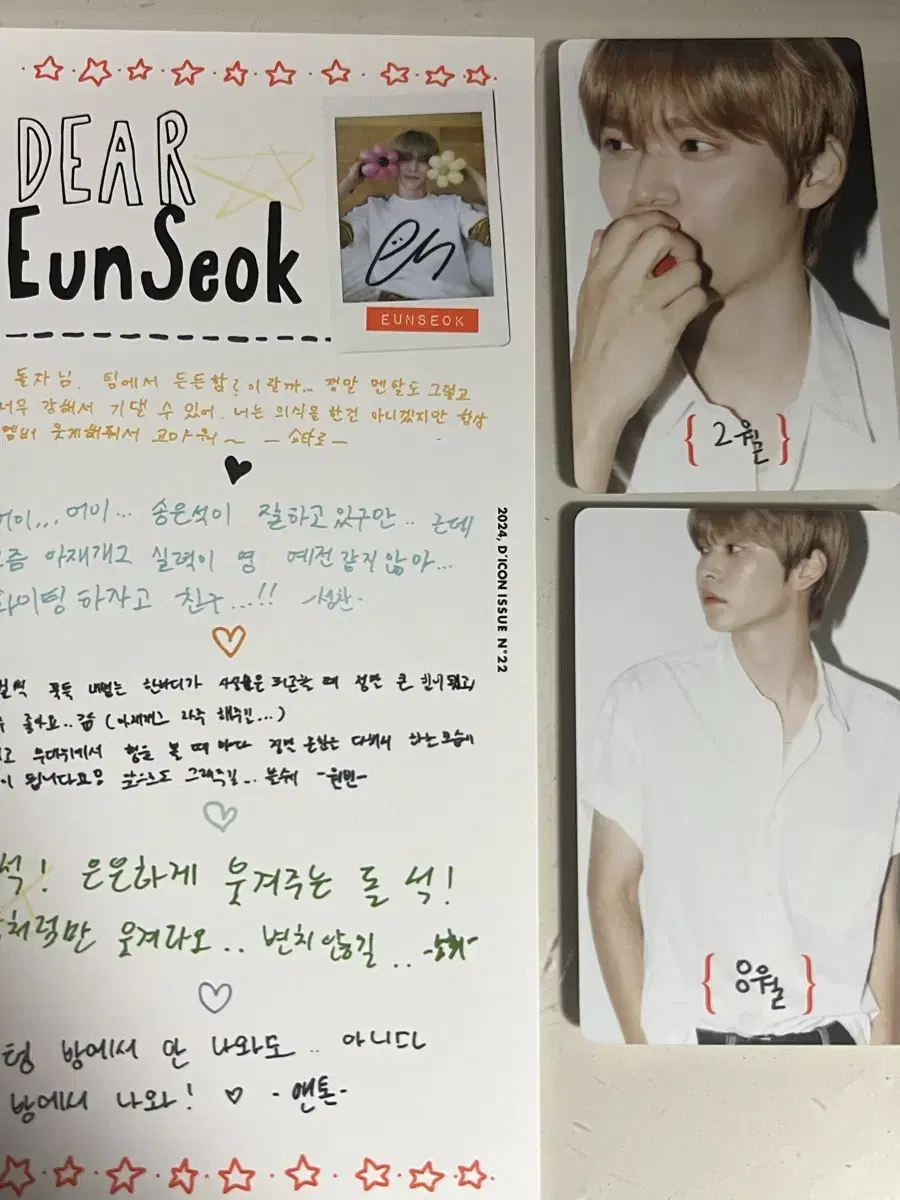 DEAR
EunSeok
en
EUNSEOK
돌자님. 팀에서 든든함? 이랄까... 정말 멘탈도 그렇고
너무 강해서 기댈 수 있어. 너는 의식을 한건 아니겠지만 항상
멤버 웃게해줘서 고마워~ -쇼타로-
어이... 어이... 송은석이 잘하고 있구만.. 근데
요즘 아재개그 실력이 영 예전같지 않아...
화이팅 하자고 친구...!! -성찬-
툭툭 내뱉는 한마디가 사실은 피곤할 때 정말 큰 힘이 됐고
좋아요.. (아재개그 자주 해주긴...)
무대위에서 형을 볼 때 마다 하는모습에
됩니다요! 앞으로도 그래주길... -원빈-
석! 은은하게 웃겨주는 돌 석!
처럼만 웃겨라오.. 변치 않길.. -소희-
텅 방에서 안 나와도.. 아니다
방에서 나와! ♡ -앤톤-
2024, D'ICON ISSUE N°22
{ 2월 }
{ 8월 }